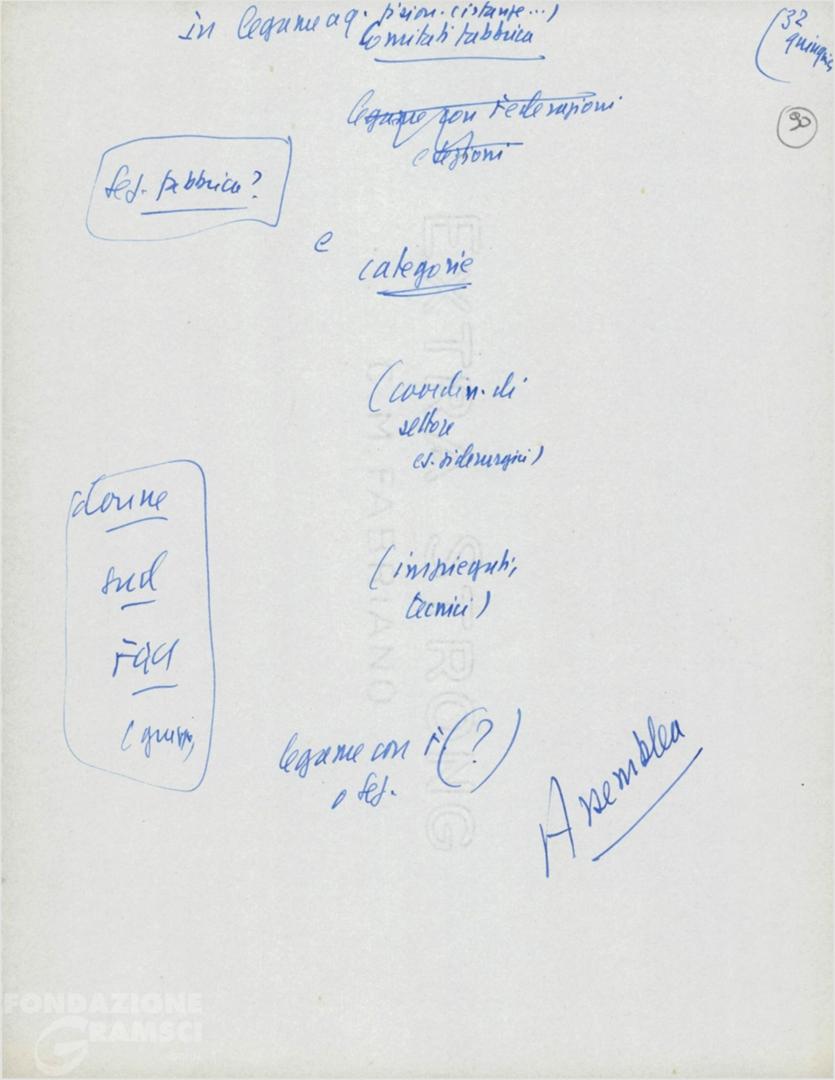 in legame a q. fision. (istanze...)
Comitati fabbrica
(32
quinquies
90
legame con Federazioni
e sezioni
Sez. fabbrica?
e
categorie
(coordin. di
settore
es. siderurgici)
donne
sud
FGCI
(impiegati,
tecnici)
legame con F. (?)
o Sez.
Assemblea
EXTRA STRONG
C.M. FABRIANO
FONDAZIONE
GRAMSCI